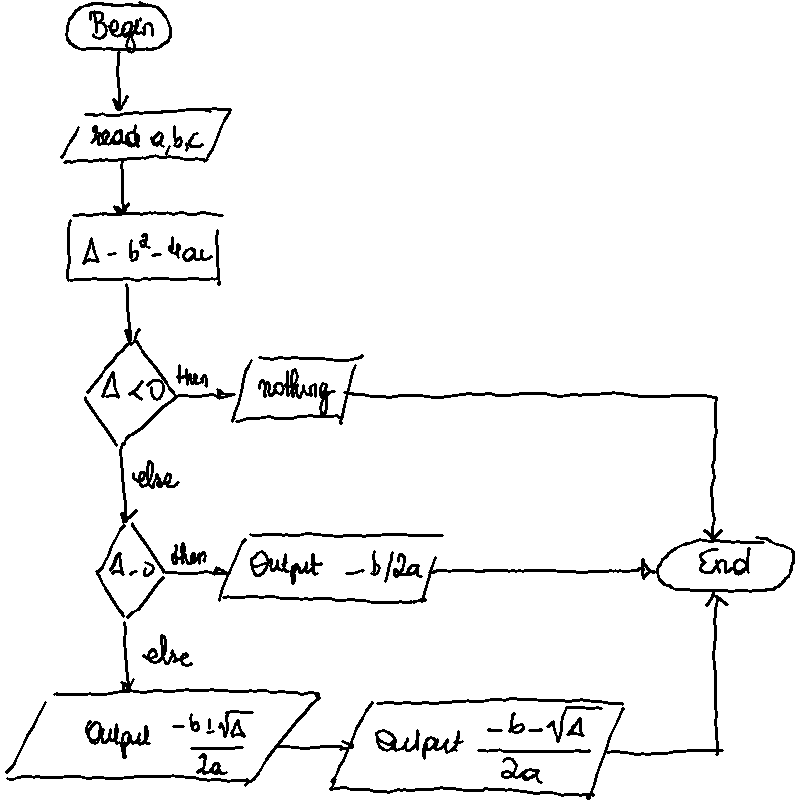 Begin
read a,b,c
Δ - b² - 4ac
Δ < 0
then
nothing
else
Δ - 0
then
Output - b/2a
End
else
Output (-b ± √Δ)/2a
Output (-b - √Δ)/2a